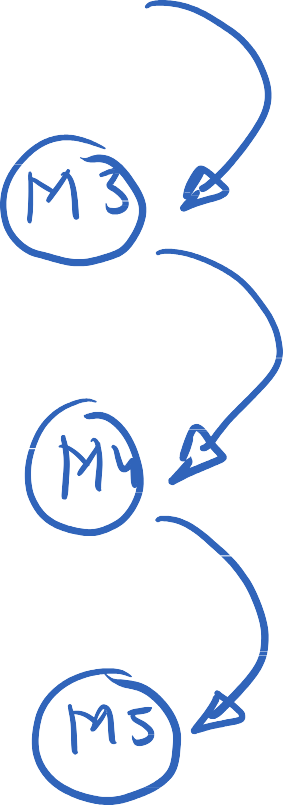 M3
M4
M5